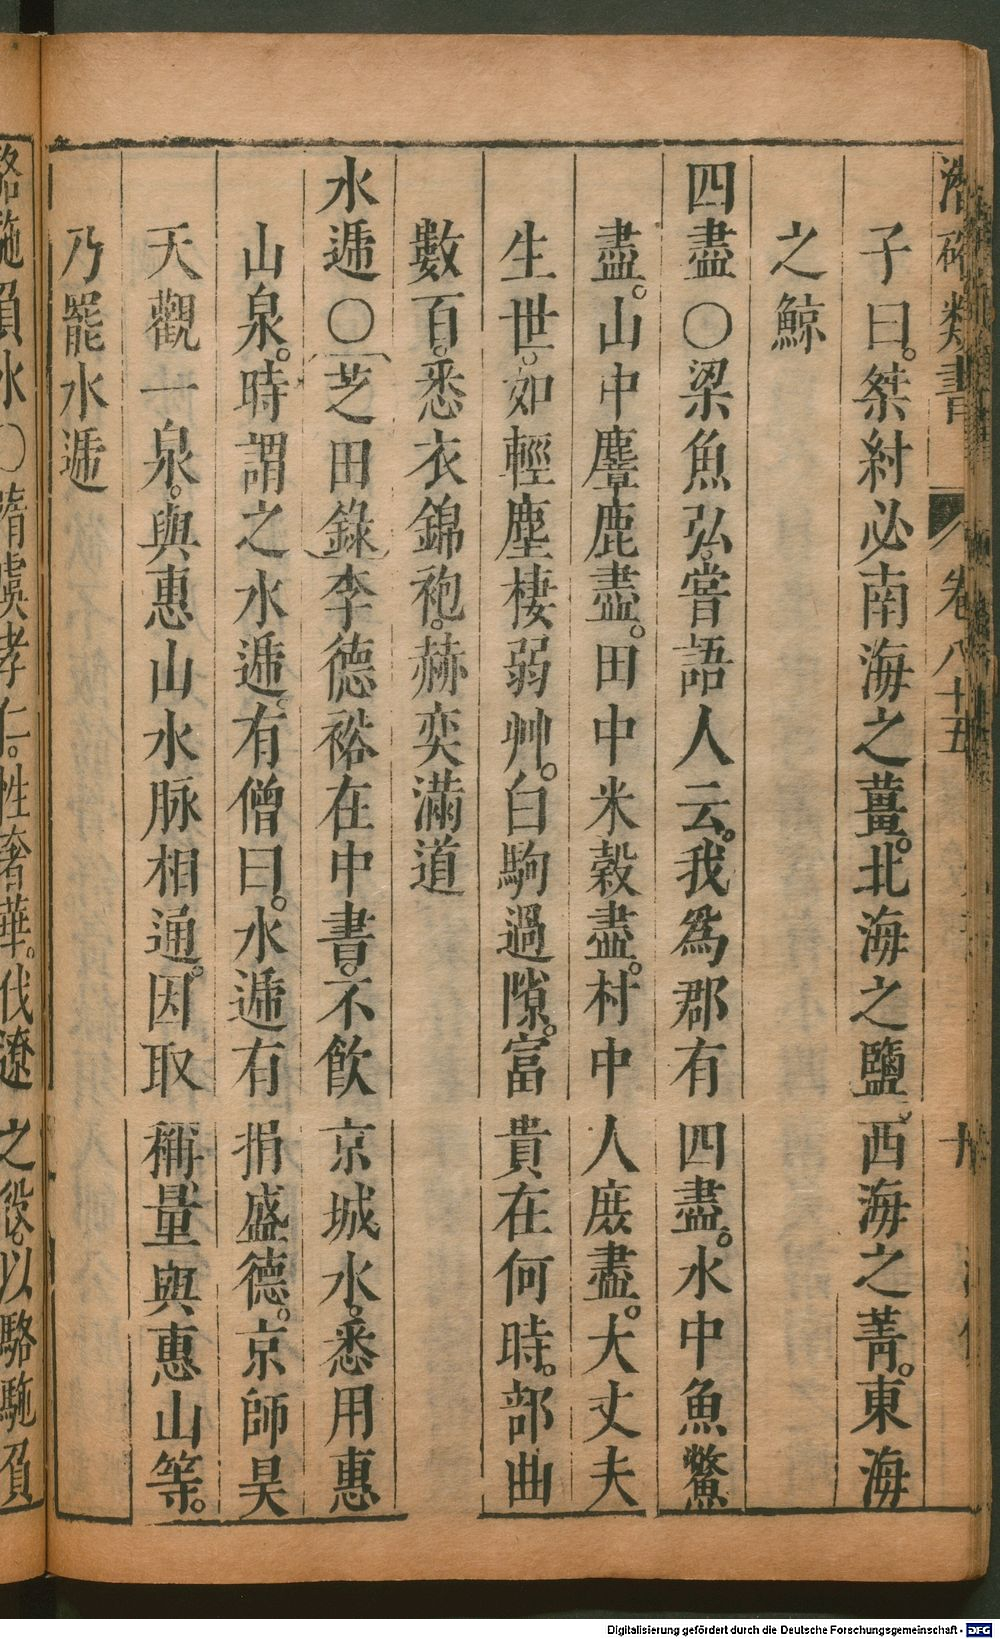 潛確類書 卷八十五
子曰。桀紂必南海之薑。北海之鹽。西海之菁。東海
之鯨
四盡〇梁魚弘。嘗語人云。我爲郡有四盡。水中魚鱉
盡。山中麞鹿盡。田中米穀盡。村中人庻盡。大丈夫
生世。如輕塵棲弱艸。白駒過隙。富貴在何時。部曲
數百。悉衣錦袍。赫奕滿道
水遞〇芝田錄李德裕在中書。不飲京城水。悉用惠
山泉。時謂之水遞。有僧曰。水遞有損盛德。京師昊
天觀一泉。與惠山水脉相通。因取稱量與惠山等。
乃罷水遞
駱駞負水〇隋虞孝仁。性奢華。伐遼之役。以駱駞負
Digitalisierung gefördert durch die Deutsche Forschungsgemeinschaft - DFG